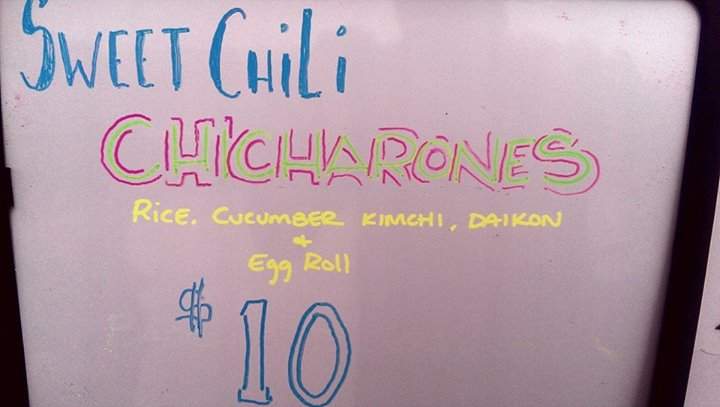 Sweet Chili
CHICHARONES
Rice. Cucumber Kimchi, Daikon
&
Egg Roll
$10